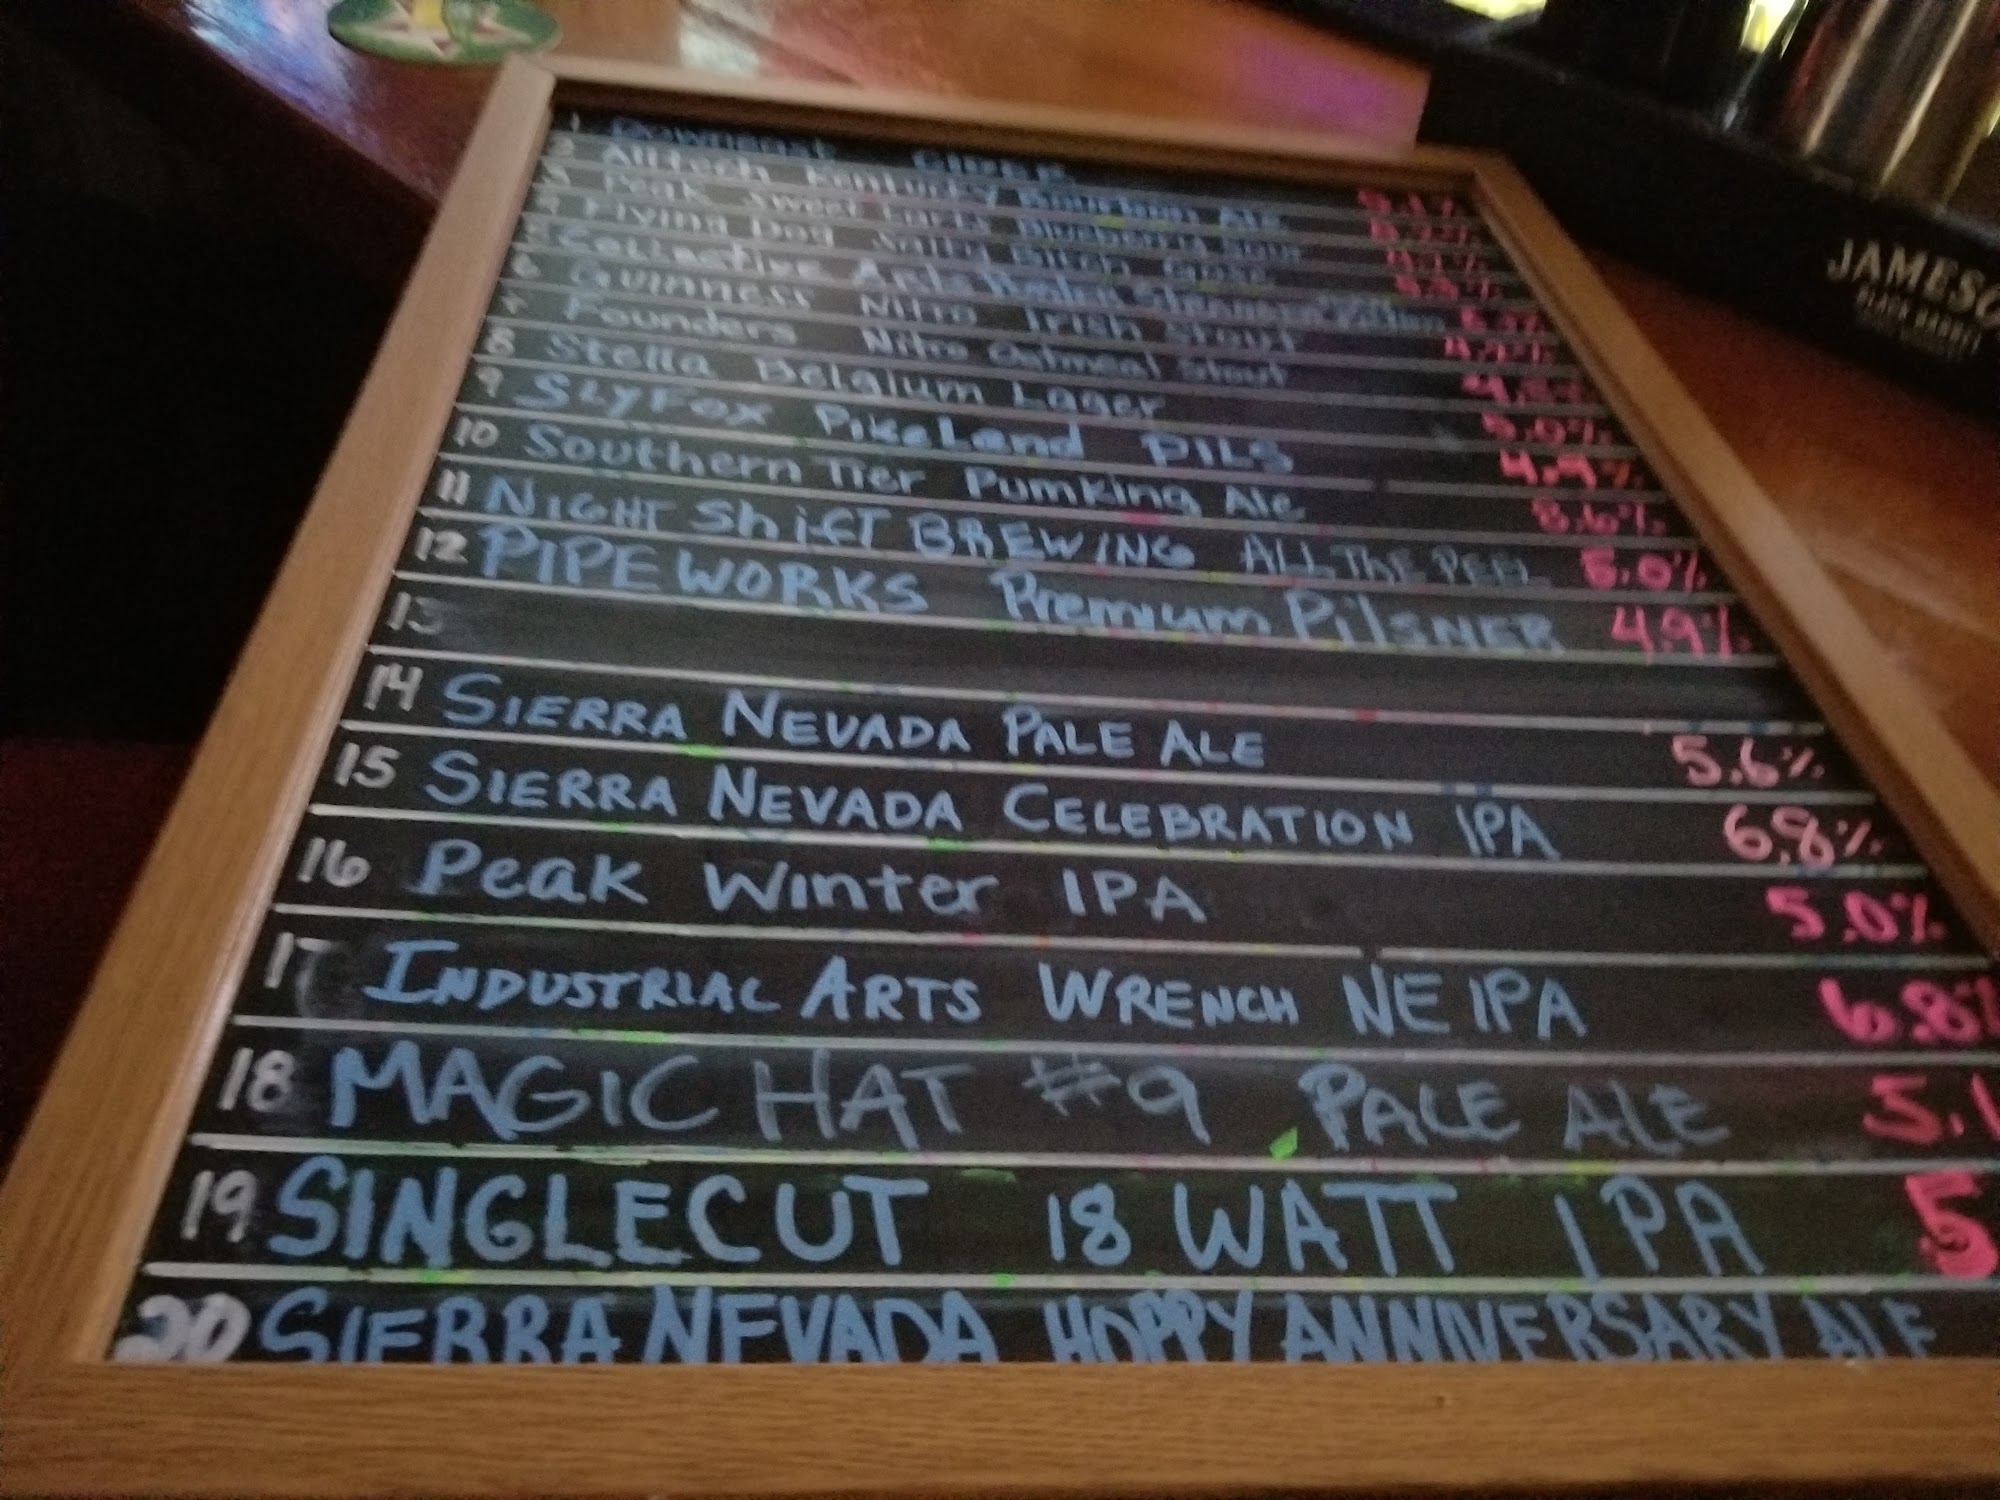 1 Downeast CIDER 5.1%
2 Alltech Kentucky Bourbon Ale
3 Peak Sweet Tarts Blueberry Sour
4 Flying Dog Salty Bitch Gose
5 Collective Arts
6 Guinness Nitro Irish Stout 4.2%
7 Founders Nitro Oatmeal Stout
8 Stella Belgium Lager 5.0%
9 SLYFOX PikeLand PILS 4.9%
10 Southern Tier Pumking Ale 8.6%
11 NIGHT Shift BREWING ALL THE PEEL 5.0%
12 PIPEWORKS Premium PilSNER 4.9%
13
14 SIERRA NEVADA PALE ALE 5.6%
15 SIERRA NEVADA CELEBRATION IPA 6.8%
16 Peak Winter IPA 5.0%
17 INDUSTRIAL ARTS WRENCH NE IPA 6.8%
18 MAGIC HAT #9 PALE ALE 5.1
19 SINGLECUT 18 WATT IPA 5
20 SIERRA NEVADA HOPPY ANNIVERSARY ALE
JAMESO
BLACK BARREL